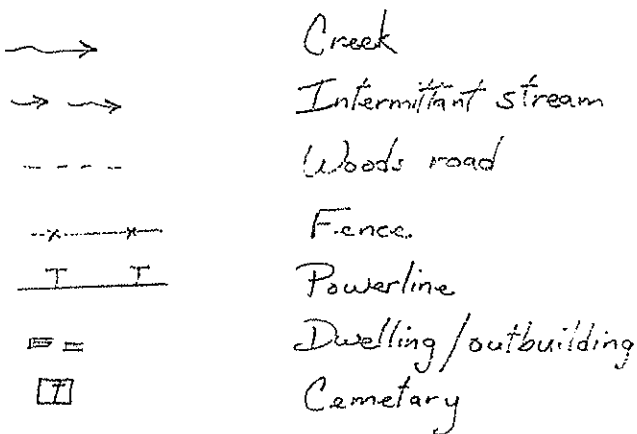 Creek
Intermittant stream
Woods road
Fence
T T Powerline
Dwelling/outbuilding
Cemetary